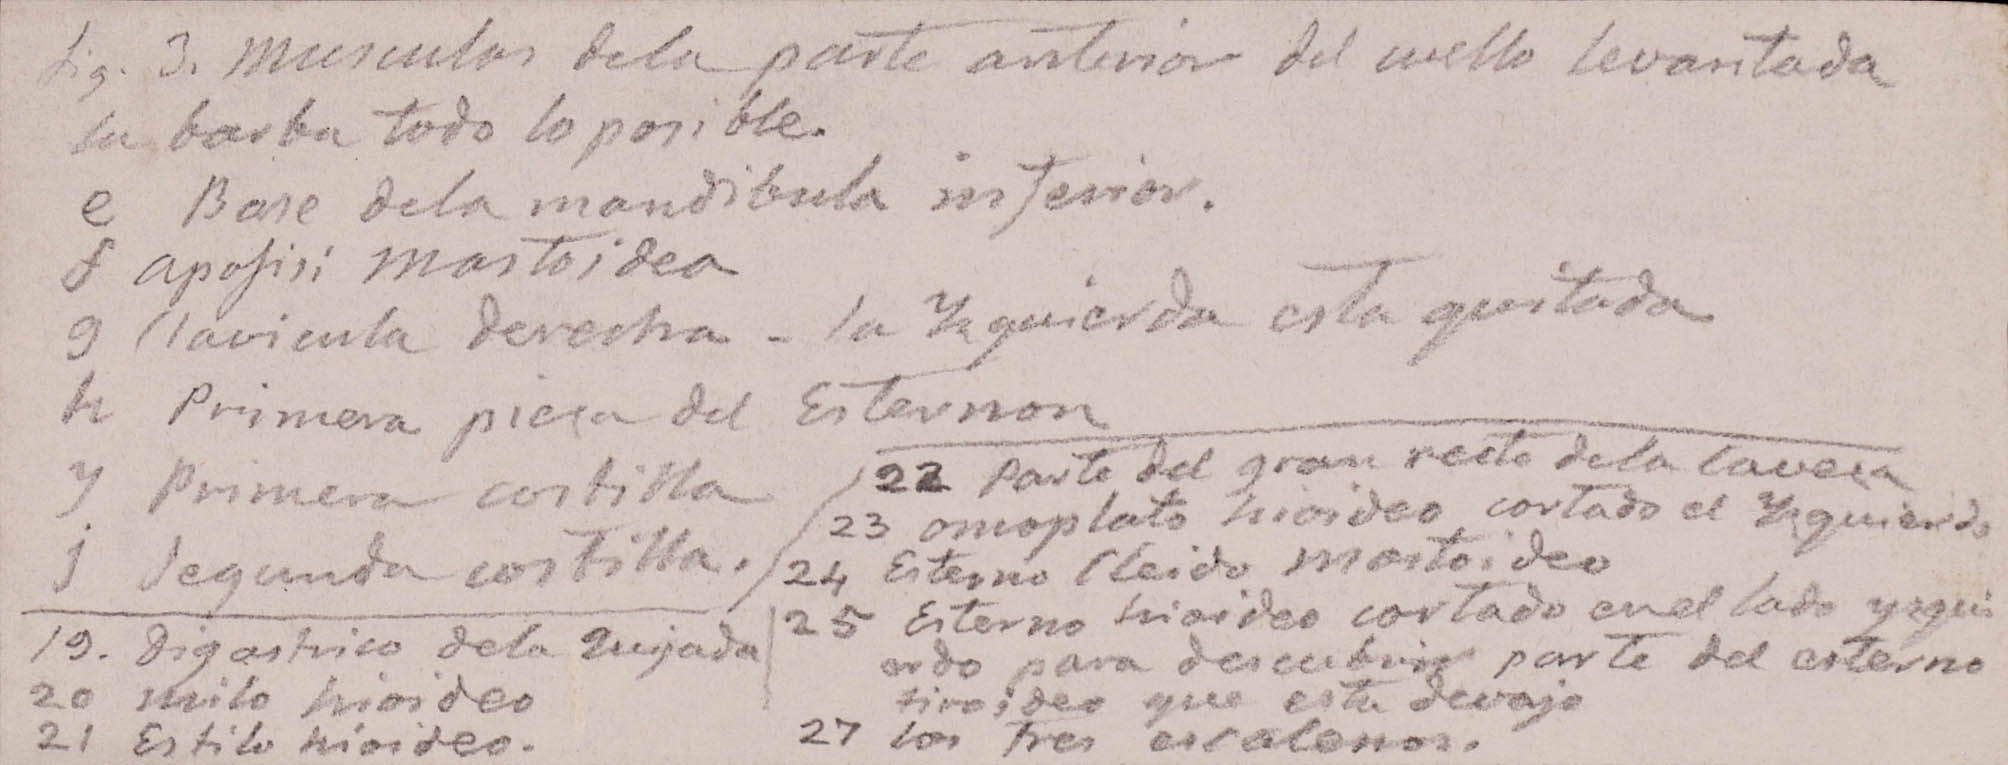 fig. 3. Musculos dela parte anterior del cuello levantada
la barba todo lo posible.
e Base dela mandibula inferior.
f apofisi mastoidea
g Clavicula derecha - la Yzquierda esta quitada
h Primera pieça del Esternon
y Primera costilla
j Segunda costilla.
19. Digastrico dela Quijada
20 milo hioideo
21 Estilo hioideo.
22 Parte del gran recto dela caveça
23 omoplato hioideo, cortado el Yzquierdo
24 Esterno Cleido mastoideo
25 Esterno hioideo cortado en el lado yzqui
erdo para descubrir parte del esterno
tiroideo que esta devajo
27 los tres escalenos.